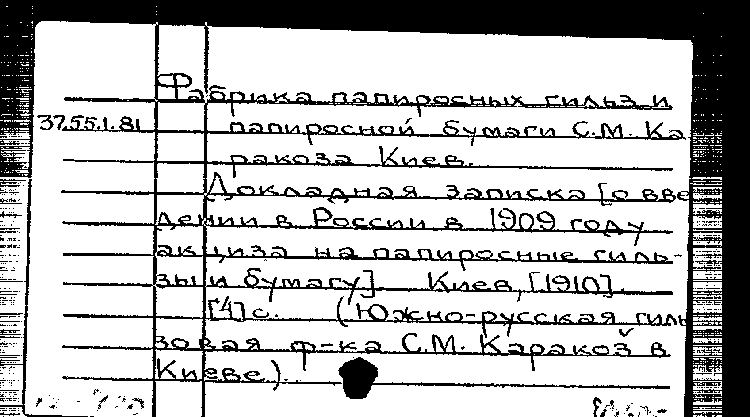 Фабрика папиросных гильз и
37.55.1.81 папиросной бумаги С.М. Ка
ракоза Киев.
Докладная записка [о вве
дении в России в 1909 году
акциза на папиросные гиль-
зы и бумагу]. Киев, [1910].
[4] с. (Южно-русская гиль
зовая ф-ка С.М. Каракоз в
Киеве).